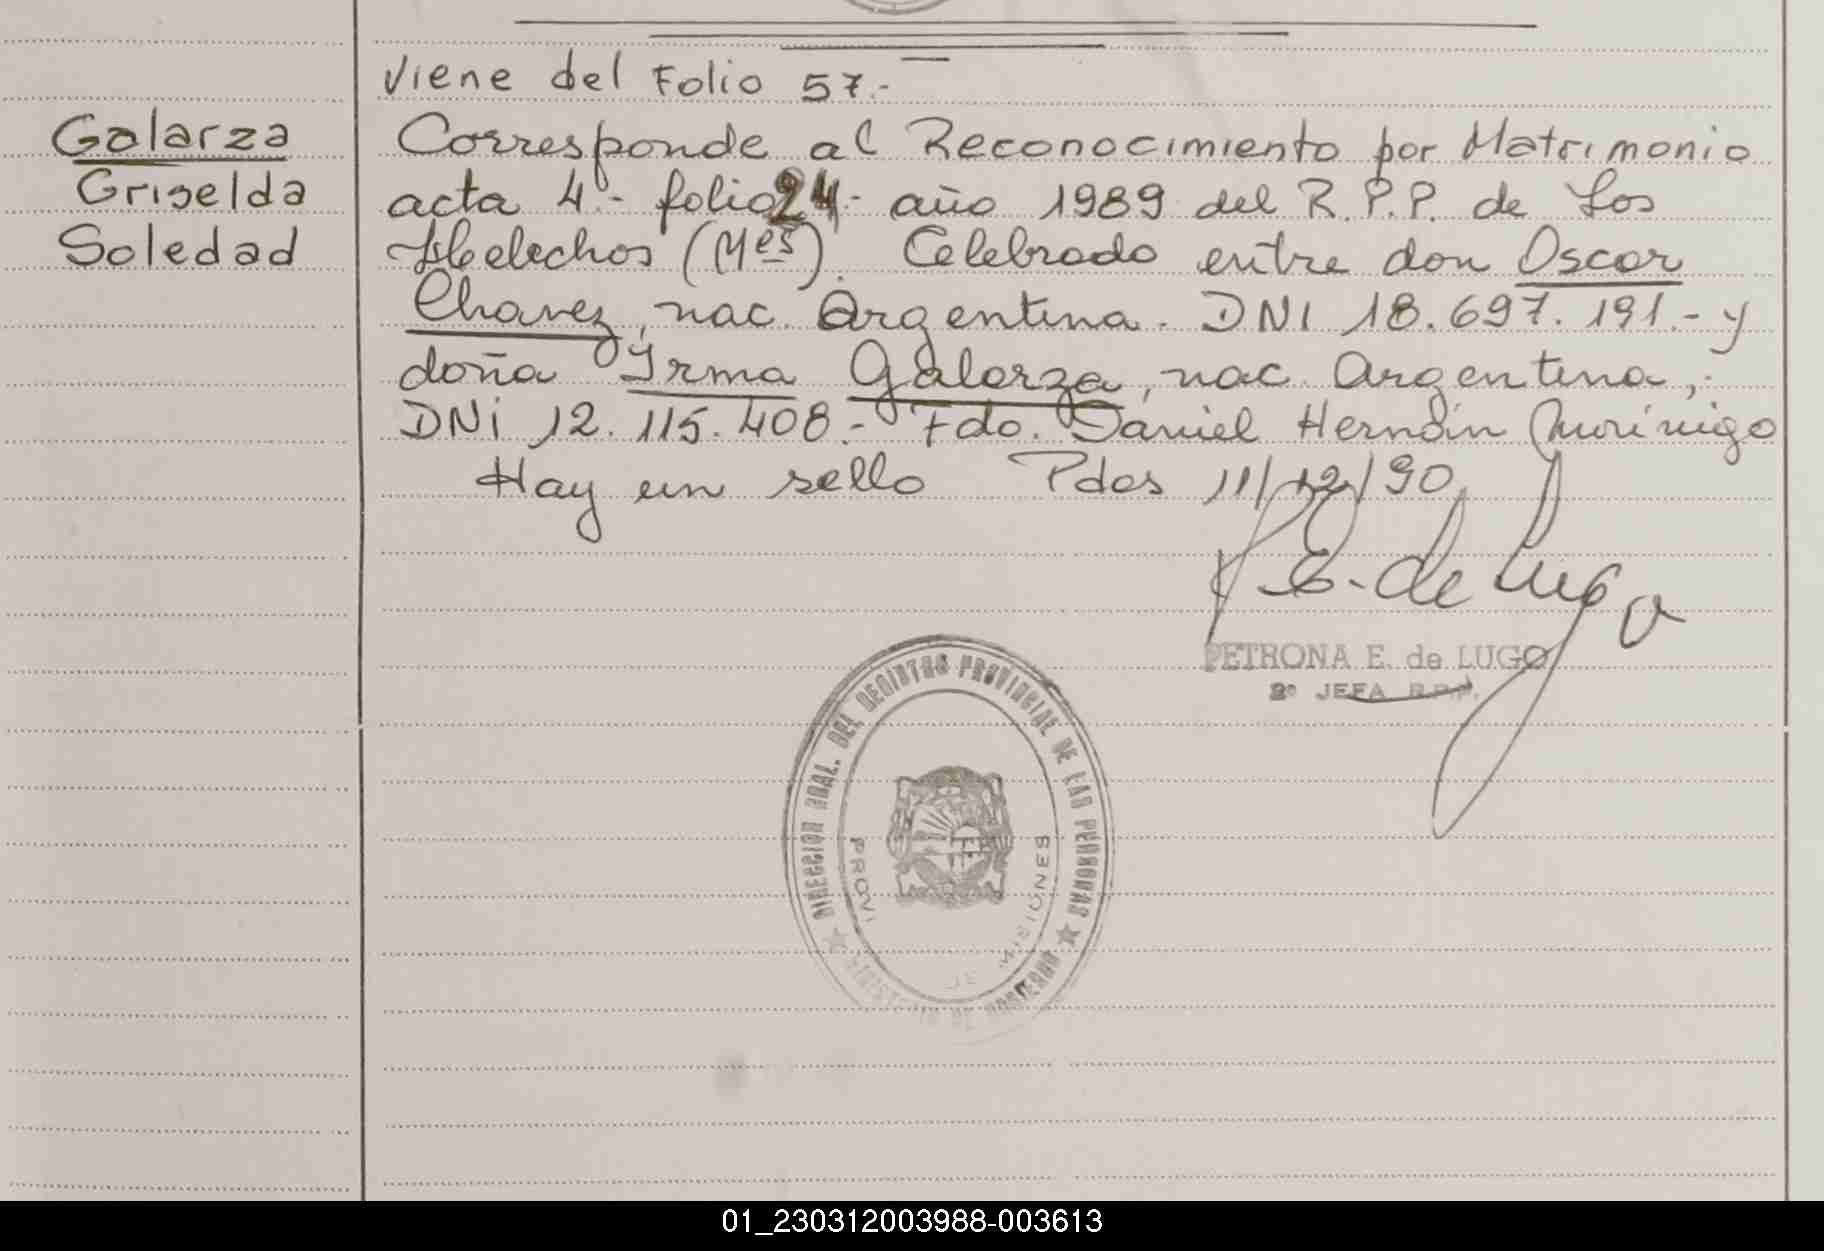 Viene del Folio 57.-
Galarza
Griselda
Soledad
Corresponde al Reconocimiento por Matrimonio
acta 4.- folio 24.- año 1989 del R.P.P. de Los
Helechos (Mes). Celebrado entre don Oscar
Chavez, nac. Argentina. DNI 18.697.191.- y
doña Irma Galarza, nac. Argentina,.
DNi 12.115.408.- Fdo. Daniel Hernán Morínigo
Hay un sello Pdas 11/12/90
P. E. de Lugo
PETRONA E. de LUGO
2º JEFA R.P.P.
DIRECCION GRAL. DEL REGISTRO PROVINCIAL DE LAS PERSONAS
MINISTERIO DE GOBIERNO
PROVI DE MISIONES
01_230312003988-003613